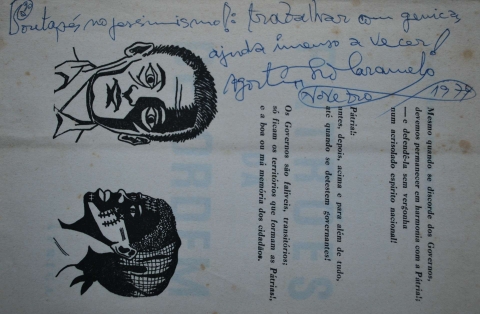 Pontapés no pessimismo!: trabalhar com genica
ajuda imenso a vencer!
Agostinho Caramelo
1979
Mesmo quando se discorde dos Governos,
devemos permanecer em harmonia com a Pátria!:
— e defendê-la sem vergonha
num acrisolado espírito nacional!
Pátria!:
antes, depois, acima e para além de tudo,
até quando se detestem governantes!
Os Governos são falíveis, transitórios;
só ficam os territórios que formam as Pátrias!,
e a boa ou má memória dos cidadãos.